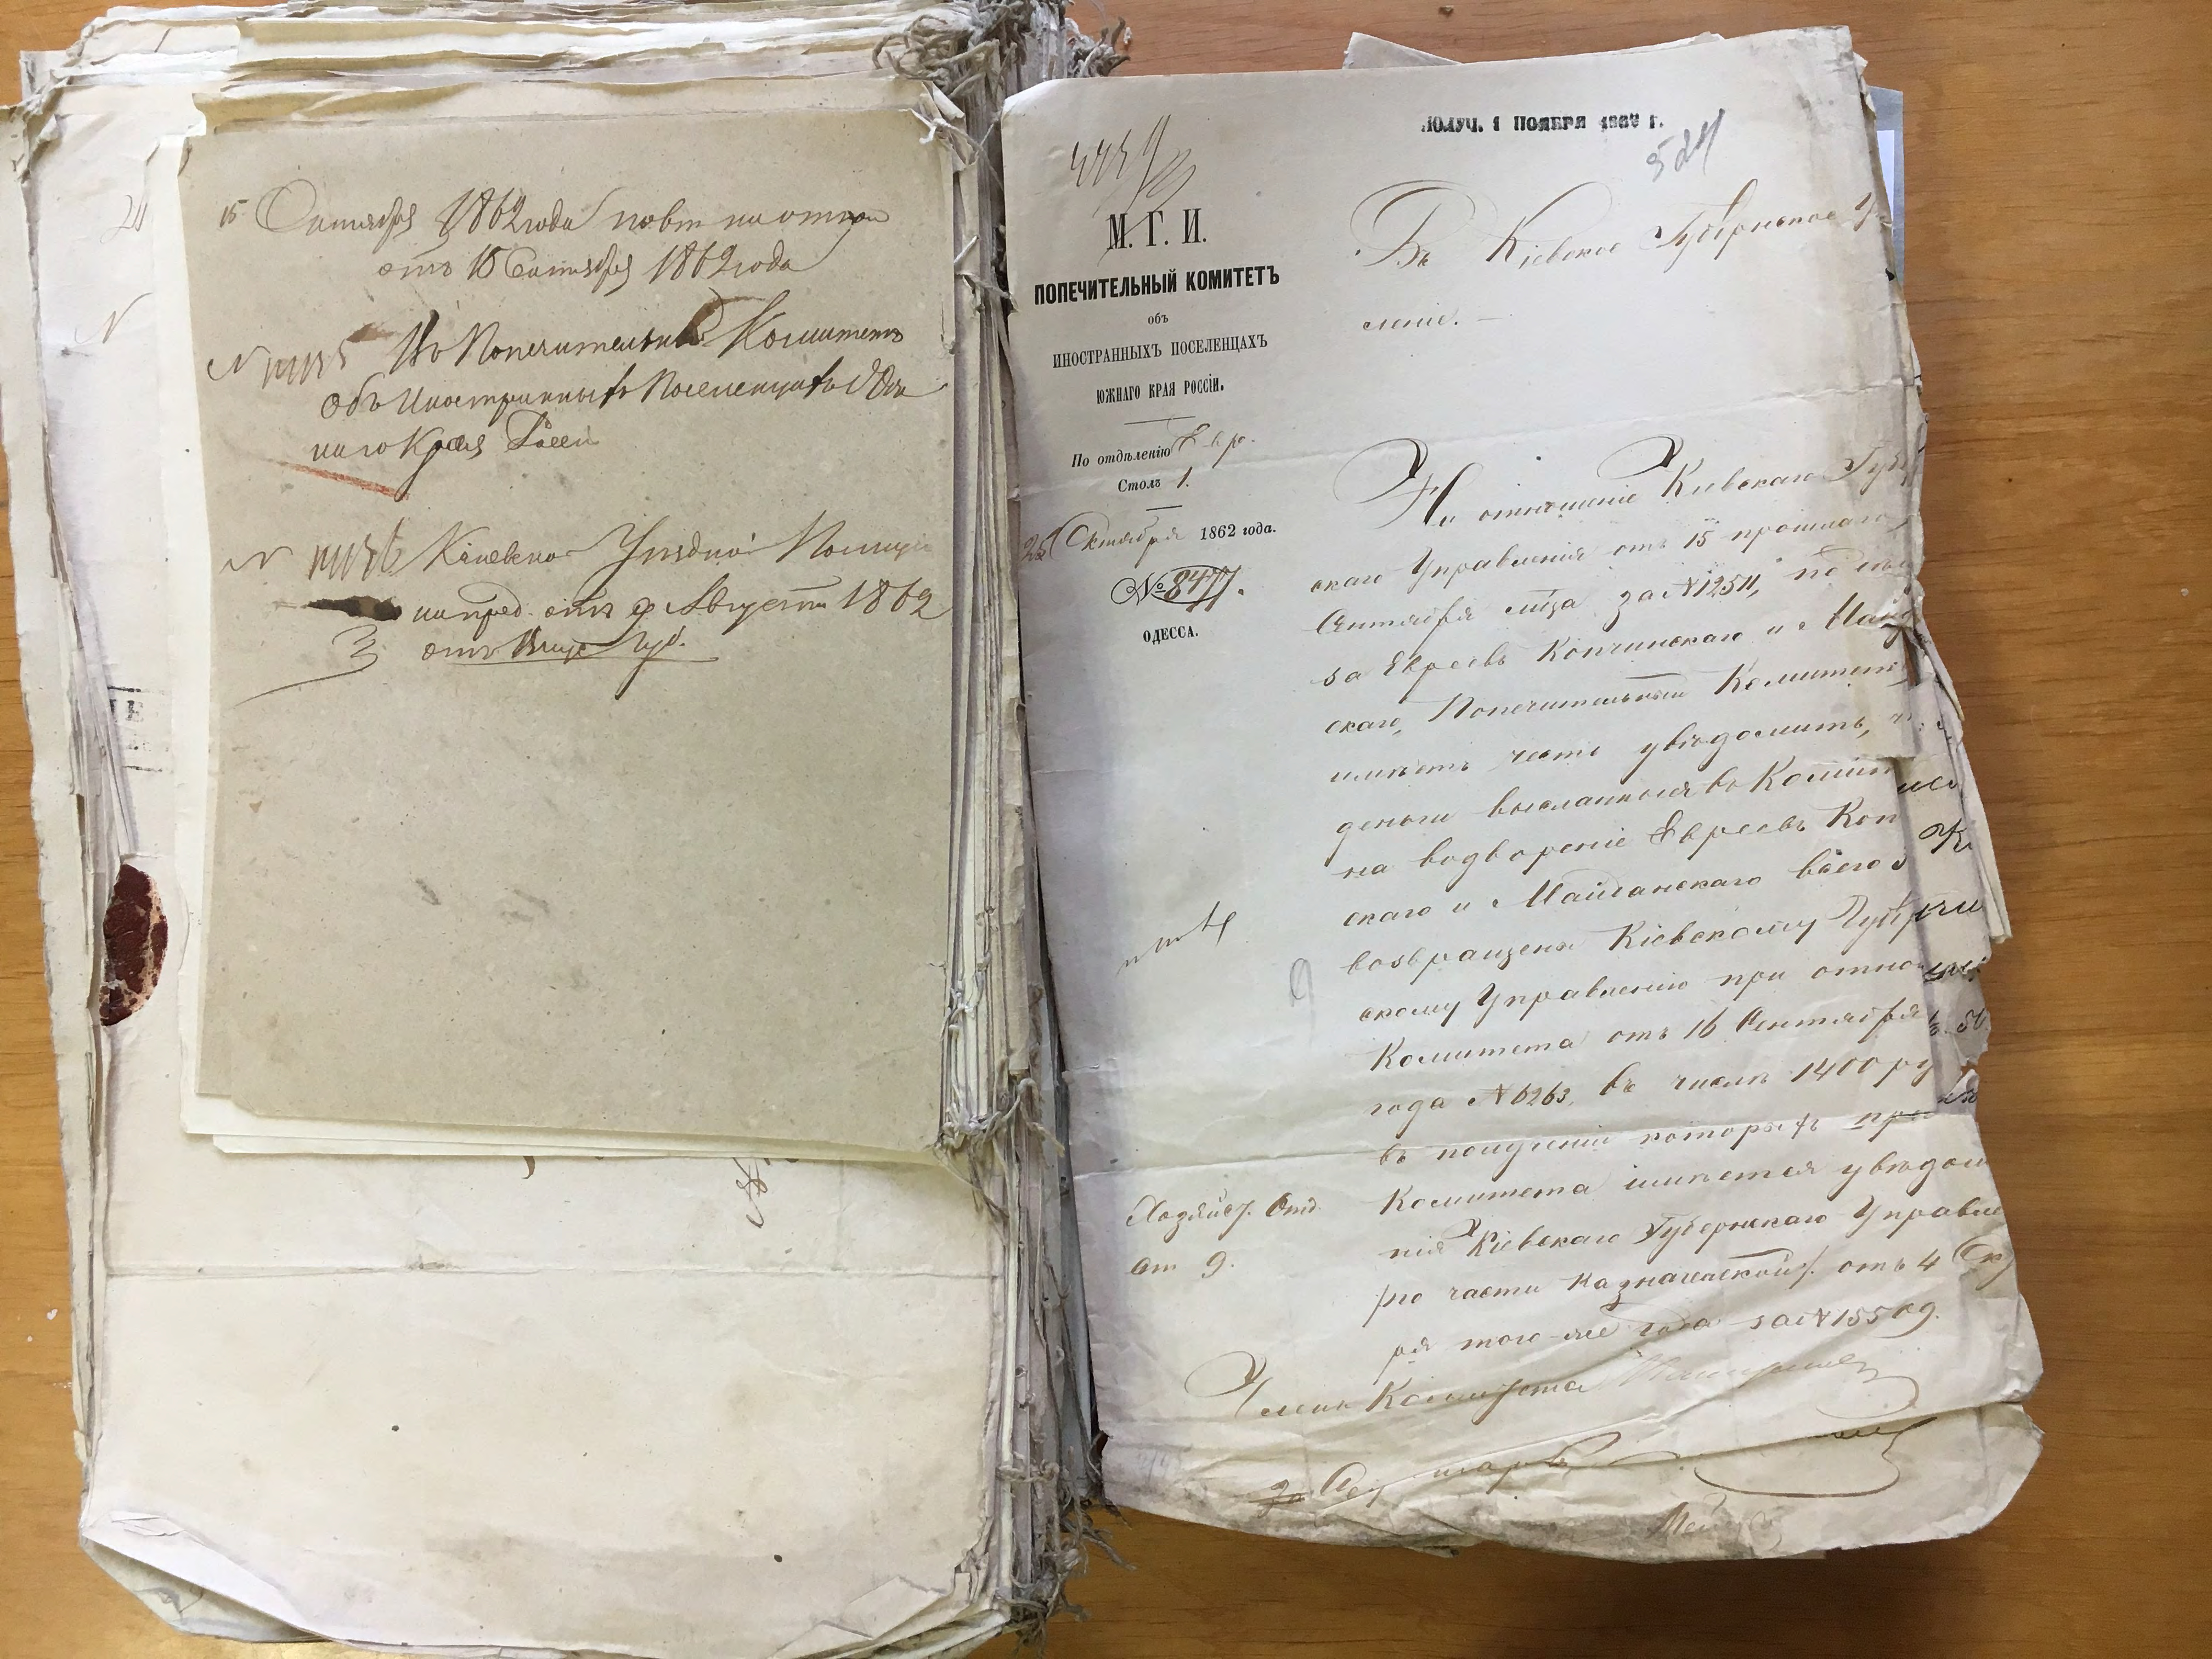 15 Октября 1862 года
отъ 15 Сентября 1862 года
Въ Попечительный Комитетъ
Объ Иностранныхъ Поселенцахъ Юж
наго Края Россіи
N Кіевской Уѣздной Полиціи
на пред. отъ 9 Августа 1862
отъ Губ.
ПОЛУЧ. 1 НОЯБРЯ 1862 Г.
524
М. Г. И.
ПОПЕЧИТЕЛЬНЫЙ КОМИТЕТЪ
объ
ИНОСТРАННЫХЪ ПОСЕЛЕНЦАХЪ
ЮЖНАГО КРАЯ РОССІИ.
По отдѣленію Евр.
Столъ 1.
25 Октября 1862 года.
№ 8477.
ОДЕССА.
Въ Кіевское Губернское Уп
леніе.
На отношеніе Кіевскаго Губ
скаго Управленія отъ 15 прошлаго
Сентября м-ца за N 12511,
за Евреевъ Копчинскаго и Майд
скаго, Попечительный Комитетъ
имѣетъ честь увѣдомить, ч
деньги высланныя въ Комит
на водвореніе Евреевъ Коп
скаго и Майданскаго всего
возвращены Кіевскому Губерн
скому Управленію при отно
Комитета отъ 16 Сентября
года N 6263, въ числѣ 1400 ру
въ полученіи которыхъ
Комитета имѣется увѣдом
нія Кіевскаго Губернскаго Управле
/по части казначейской/. отъ 4 Октяб
ря того-же года за N 15509.
Хозяйст. Отд.
Ст 9.
Членъ Комитета
За Секретаря